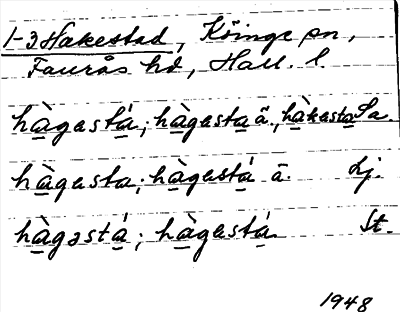 1-3 Hakestad, Köinge sn,
Faurås hd, Hall. l.
hàgastá; hàgasta ä., hàkasta Sa.
hàgasta; hàgastá ä. Lj.
hàgəstá; hàgastá St.
1948